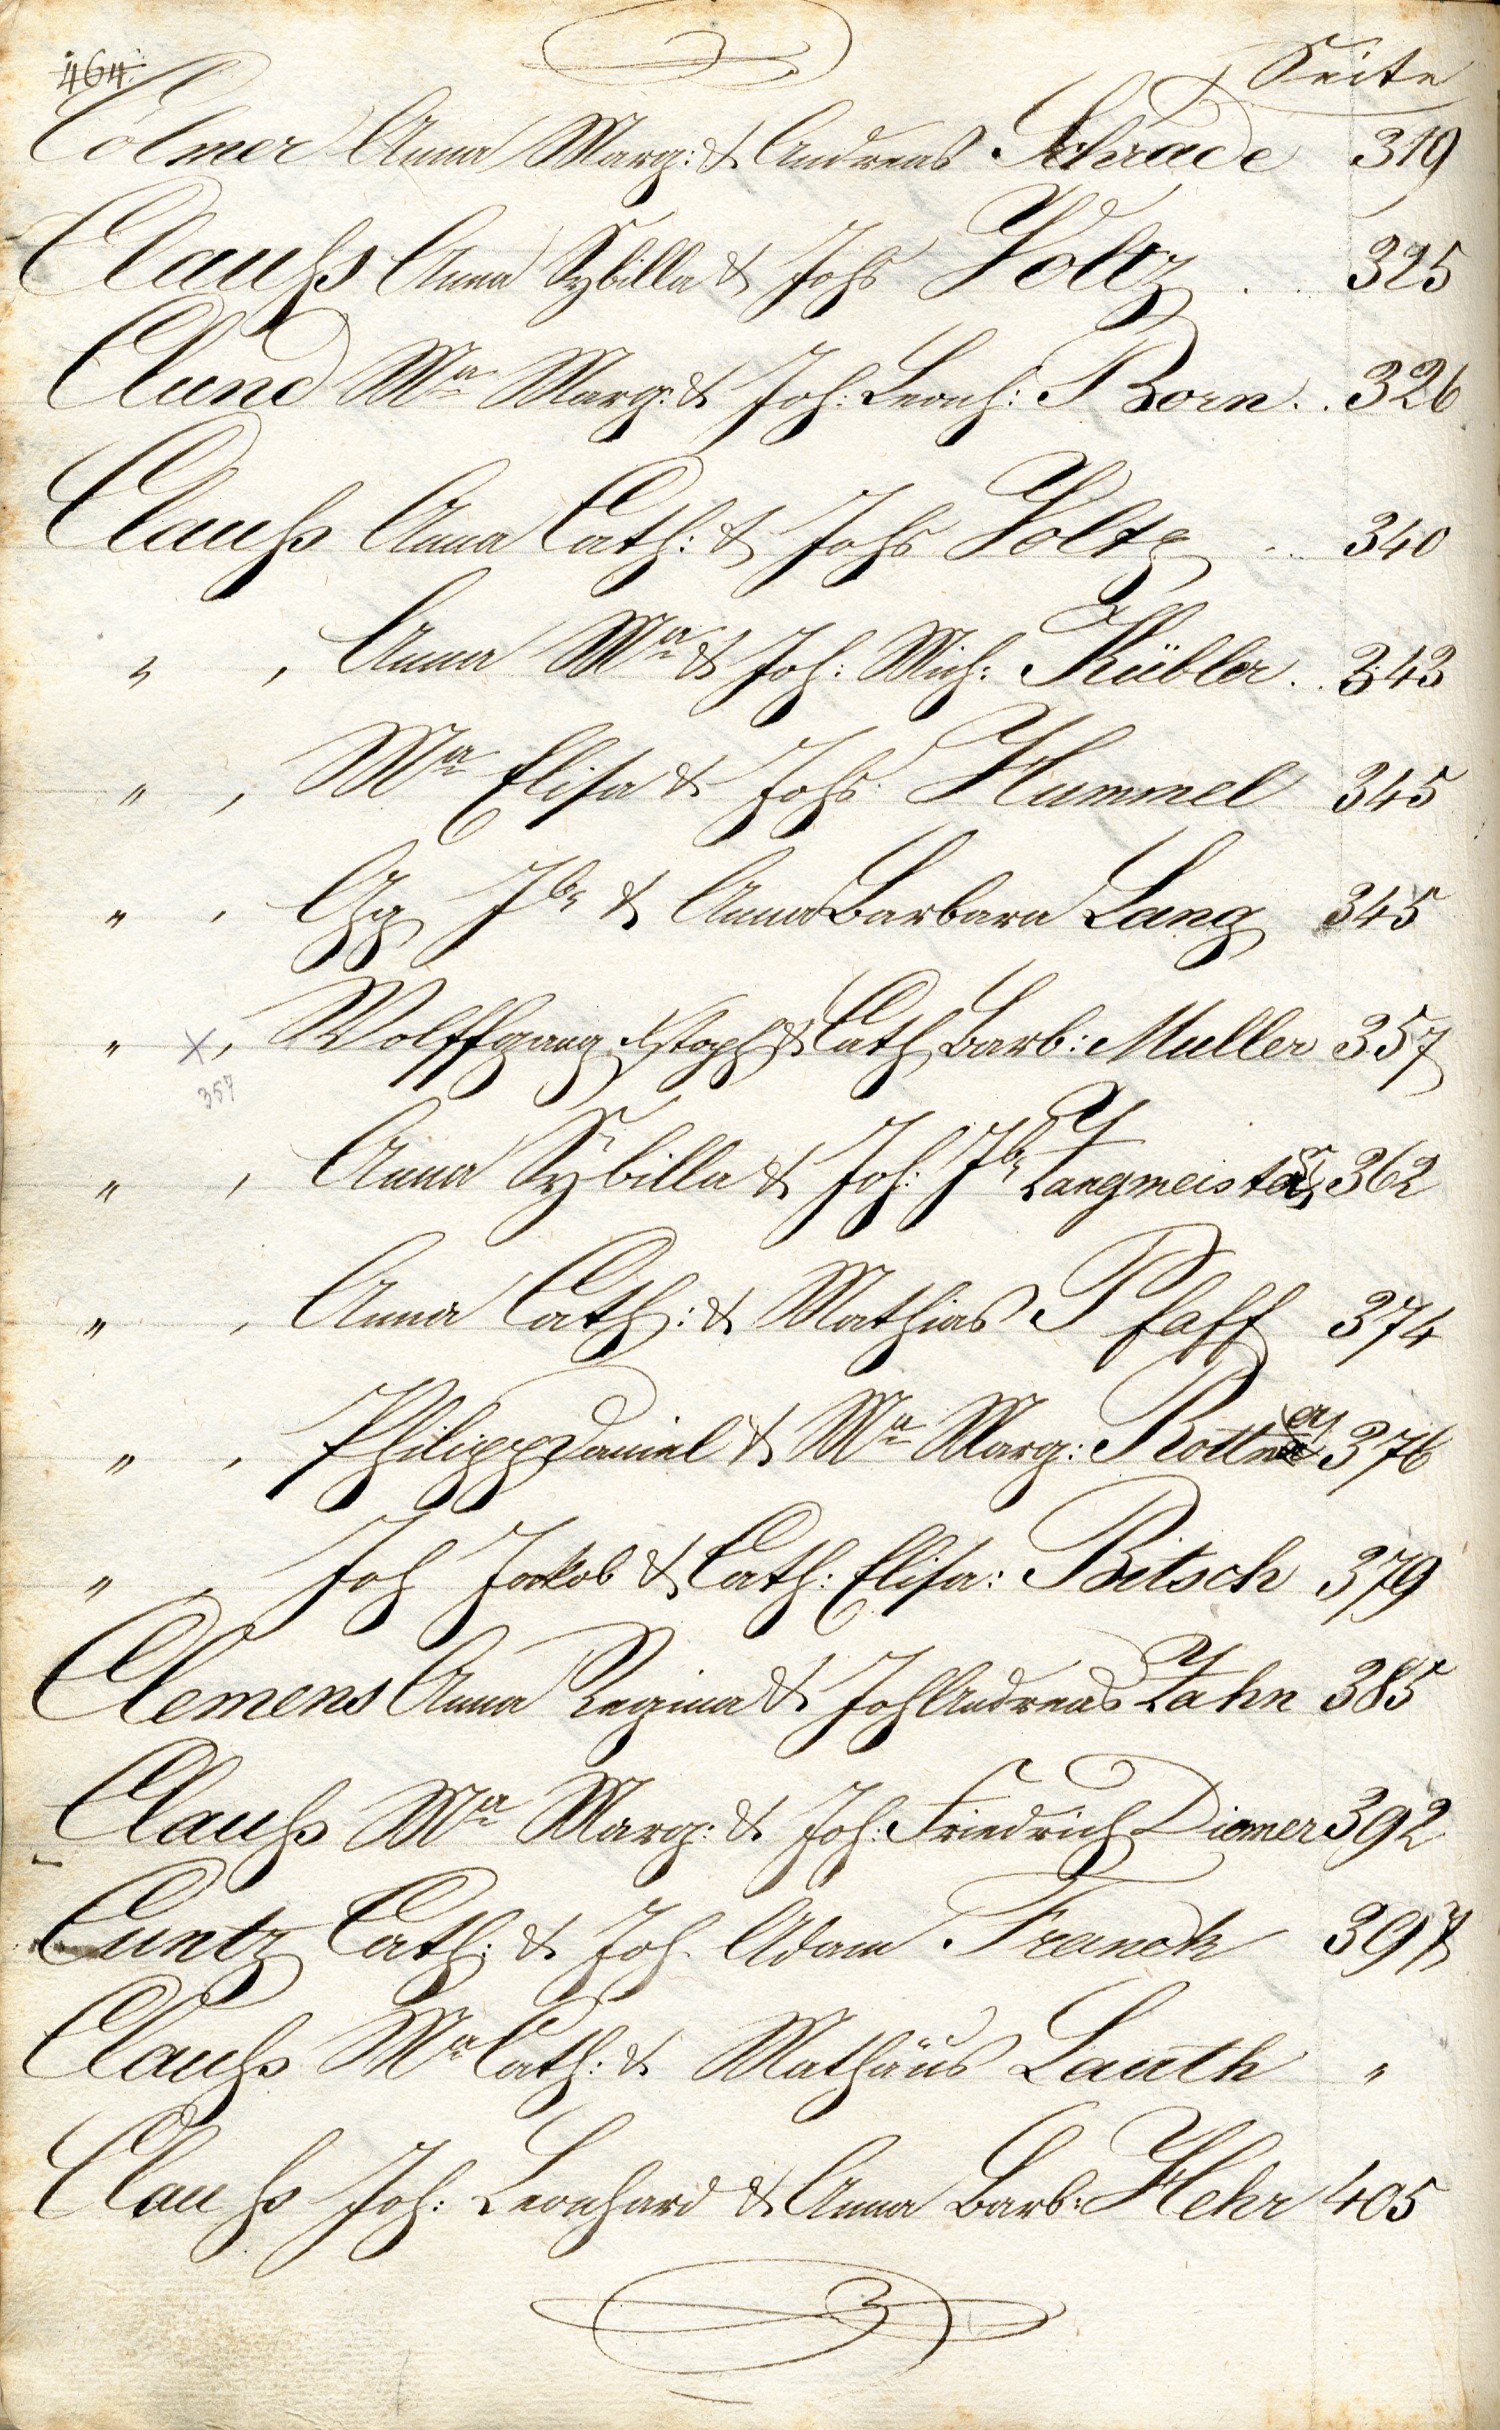 464
Seite
Colmer Anna Marg: & Andreas Schrade 319
Clauß Anna Sybilla & Johs Voltz . . 325
Clund Ma Marg: & Joh: Leonh: Born . . 326
Clauß Anna Cath: & Johs Voltz . . 340
" , Anna Ma & Joh: Mich: Kübler . . 343
" , Ma Elisa & Johs Hummel 345
" , Gg Jb & Anna Barbara Lang 345
" x, Wolffgang Xstoph & Cath Barb: Muller 357
357
" , Anna Sybilla & Joh: Jb Zangmeister 362
" , Anna Cath: & Mathias Pfaff 374
" , Philipp Daniel & Ma Marg: Rottner 376
" , Joh Jakob & Cath: Elisa: Bitsch 379
Clemens Anna Regina & Joh Andreas Zahn 385
Clauß Ma Marg: & Joh: Friedrich Diemer 392
Cuntz Cath: & Joh. Adam Franck 397
Clauß Ma Cath: & Mathäus Lauth "
Clauß Joh: Leonhard & Anna Barb: Hehr 405